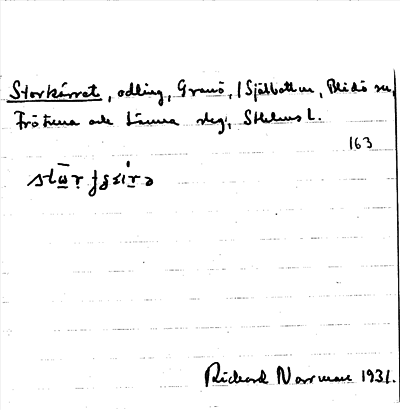 Storkärret, odling, Granö, (Sjöbotten, Blidö sn,
Frötuna och Länna slg, Sthlms l.
163
Richard Norrman 1931.